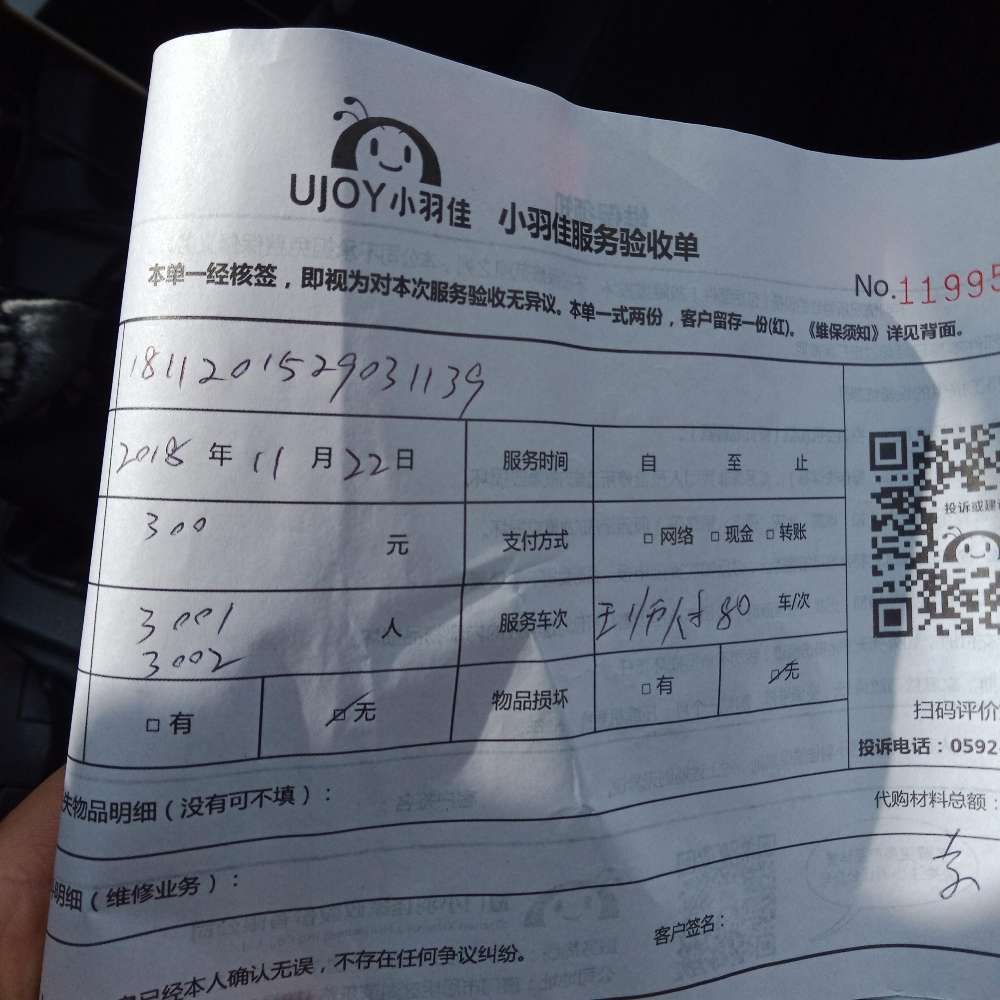 UJOY小羽佳 小羽佳服务验收单
本单一经核签，即视为对本次服务验收无异议。本单一式两份，客户留存一份(红)。《维保须知》详见背面。
No.11995
1811201529031139
2018年11月22日 服务时间 自 至 止
300 元 支付方式 □ 网络 □ 现金 □ 转账
投诉或建
3001 人 服务车次 王师付80 车/次
3002
□ 有 □ 无 物品损坏 □ 有 □ 无
扫码评价
投诉电话：0592
物品明细（没有可不填）：
代购材料总额：
明细（维修业务）：
客户签名：
已经本人确认无误，不存在任何争议纠纷。